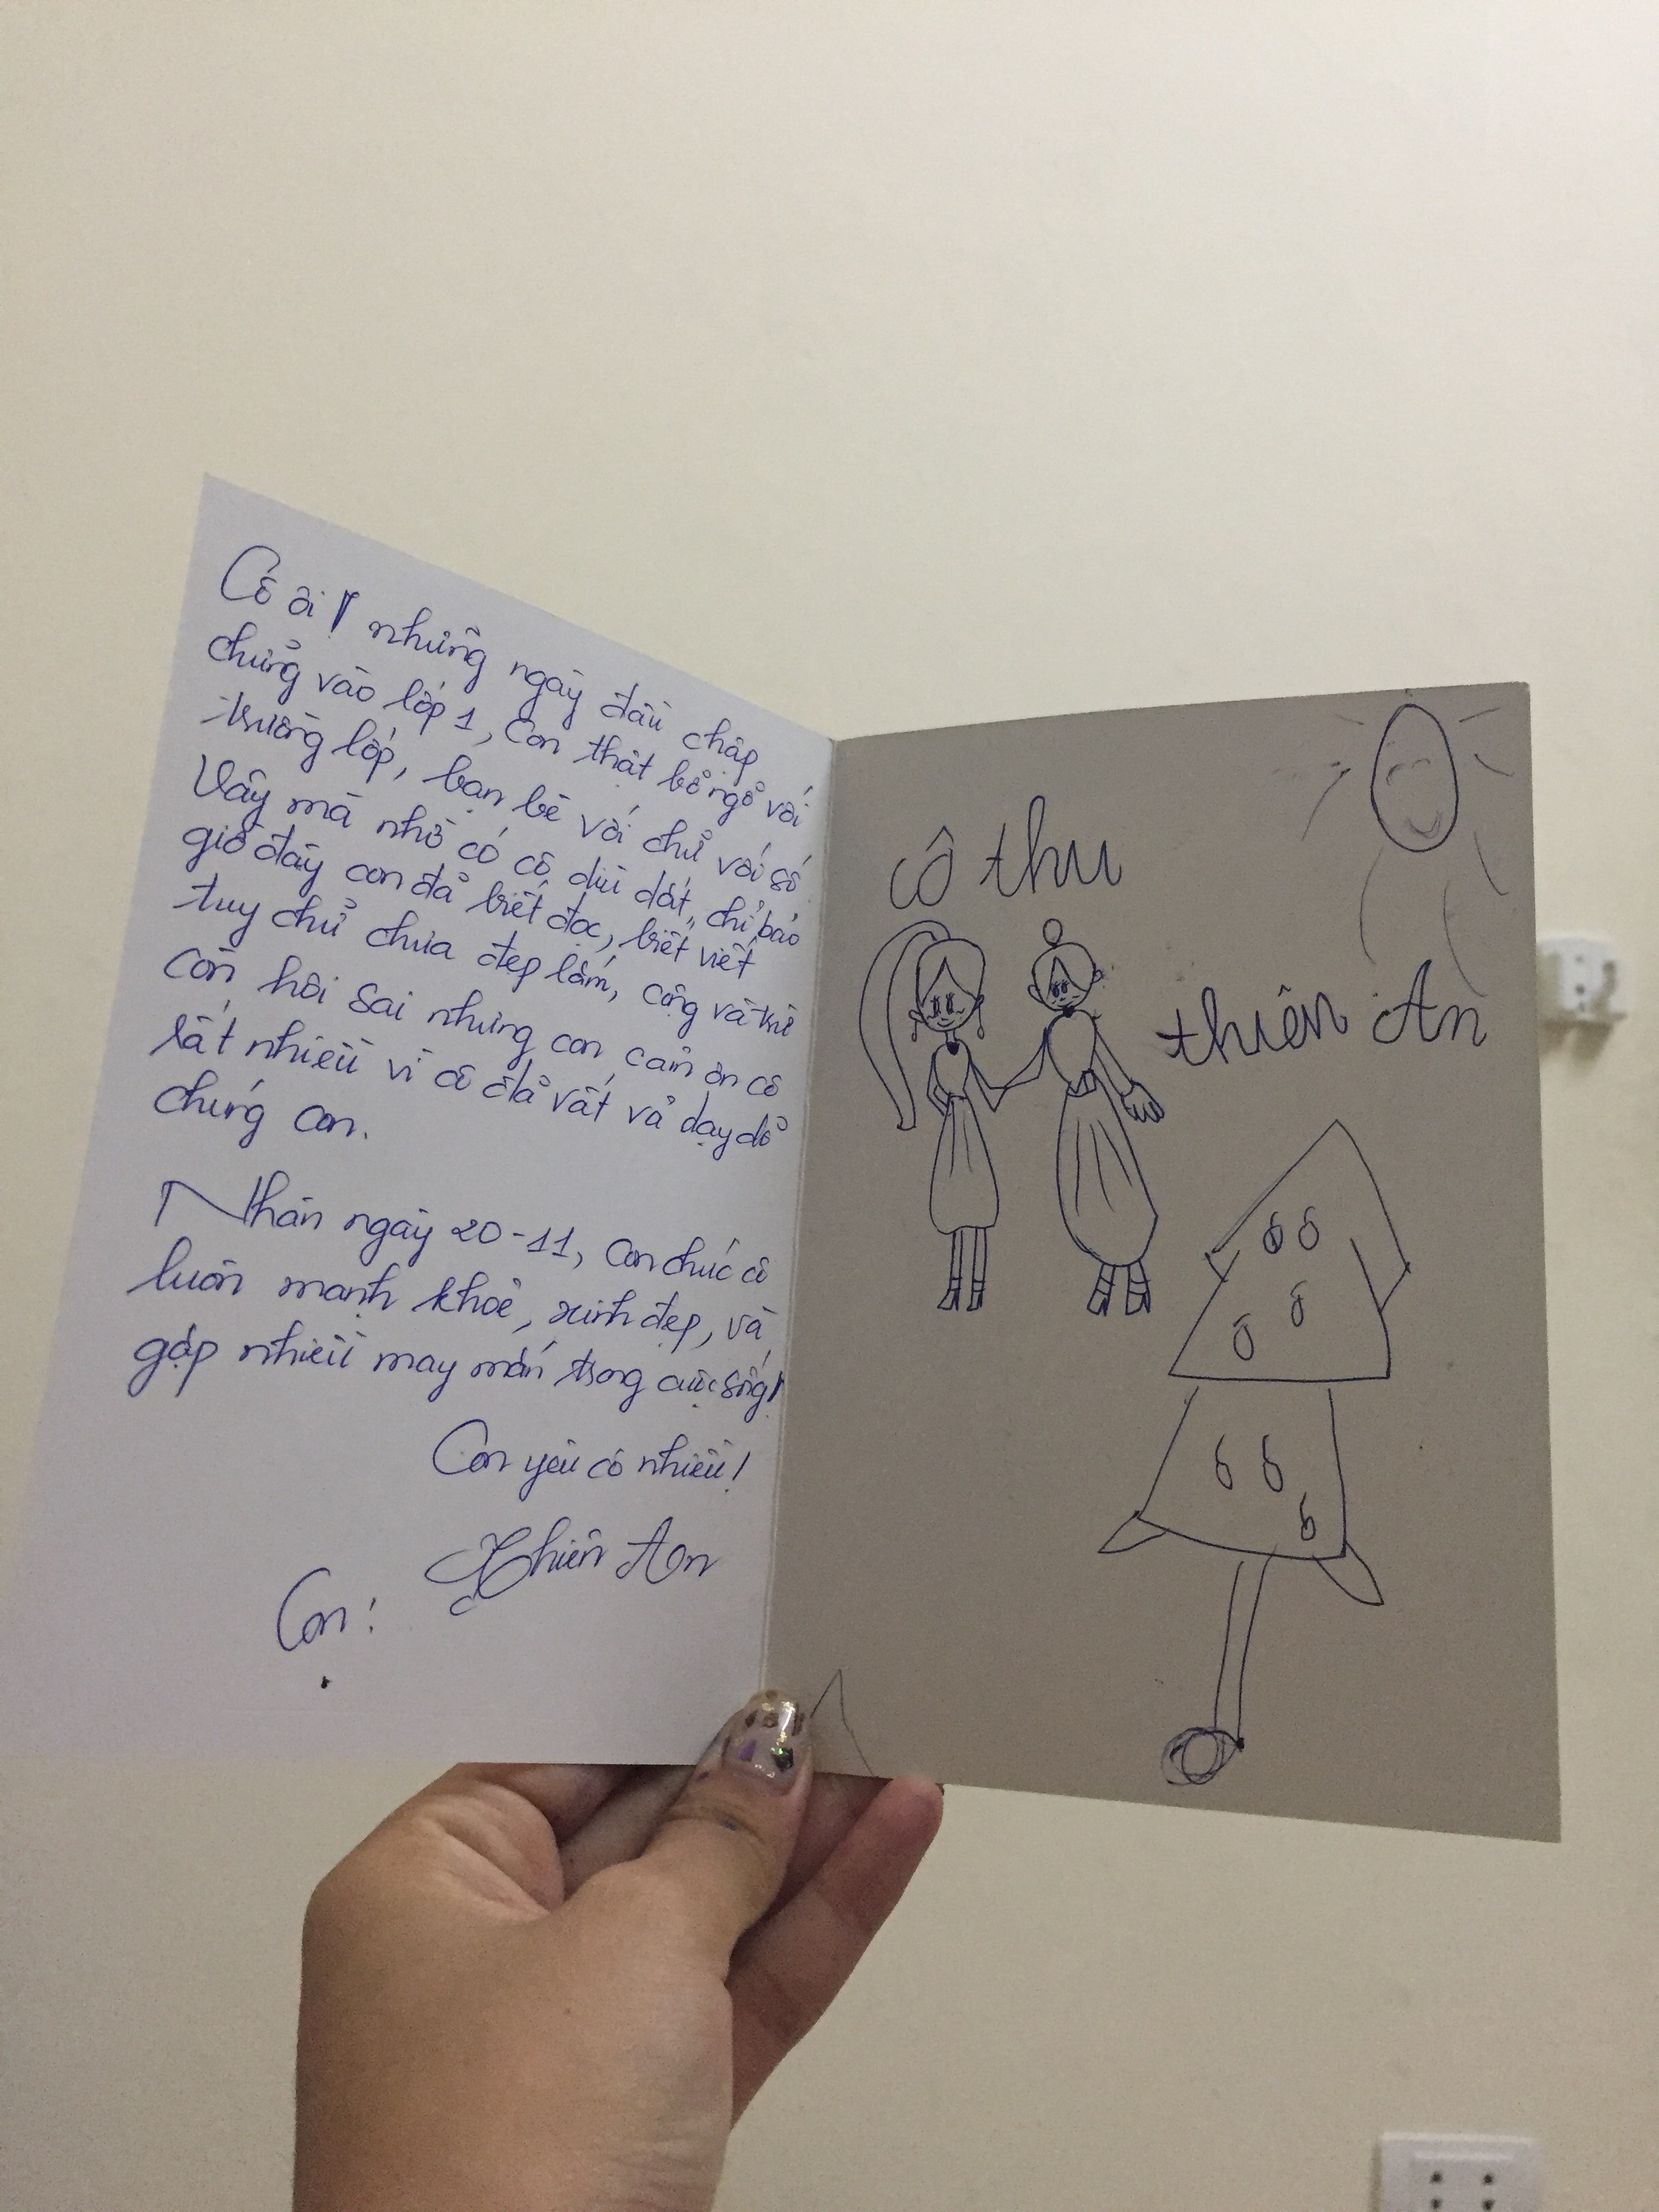 Cô ơi! những ngày đầu chập
chững vào lớp 1, con thật bỡ ngỡ với
trường lớp, bạn bè với chữ với số
Vậy mà nhờ có cô dìu dắt, chỉ bảo
giờ đây con đã biết đọc, biết viết
tuy chữ chưa đẹp lắm, cộng và trừ
còn hơi sai nhưng con cảm ơn cô
rất nhiều vì cô đã vất vả dạy dỗ
chúng con.
Nhân ngày 20-11, con chúc cô
luôn mạnh khoẻ, xinh đẹp, và
gặp nhiều may mắn trong cuộc sống!
Con yêu cô nhiều!
Con: Thiên An
cô thu
thiên An